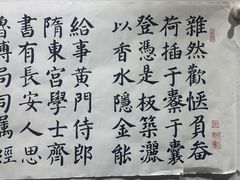 雜然歡愜負畚
荷插于橐于囊
登憑是板築灑
以香水隱金能
給事黃門侍郎
隋東宮學士齊
書有長安人思
魯博局司屬經